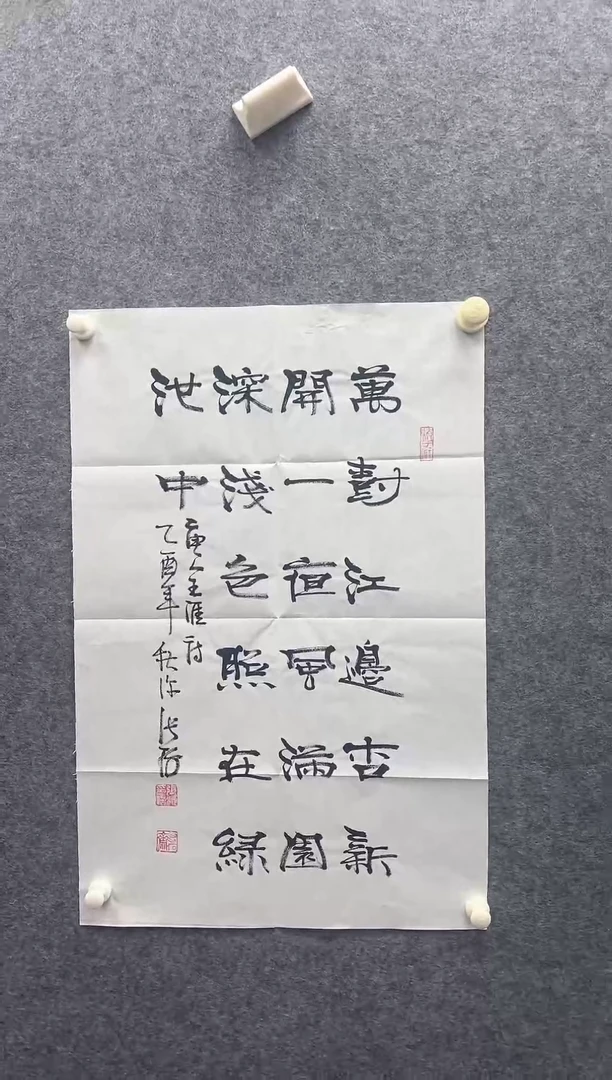 萬尌江邊杏新
開一亱風滿園
深淺色照在綠
池中
唐人王涯诗
乙酉年秋深